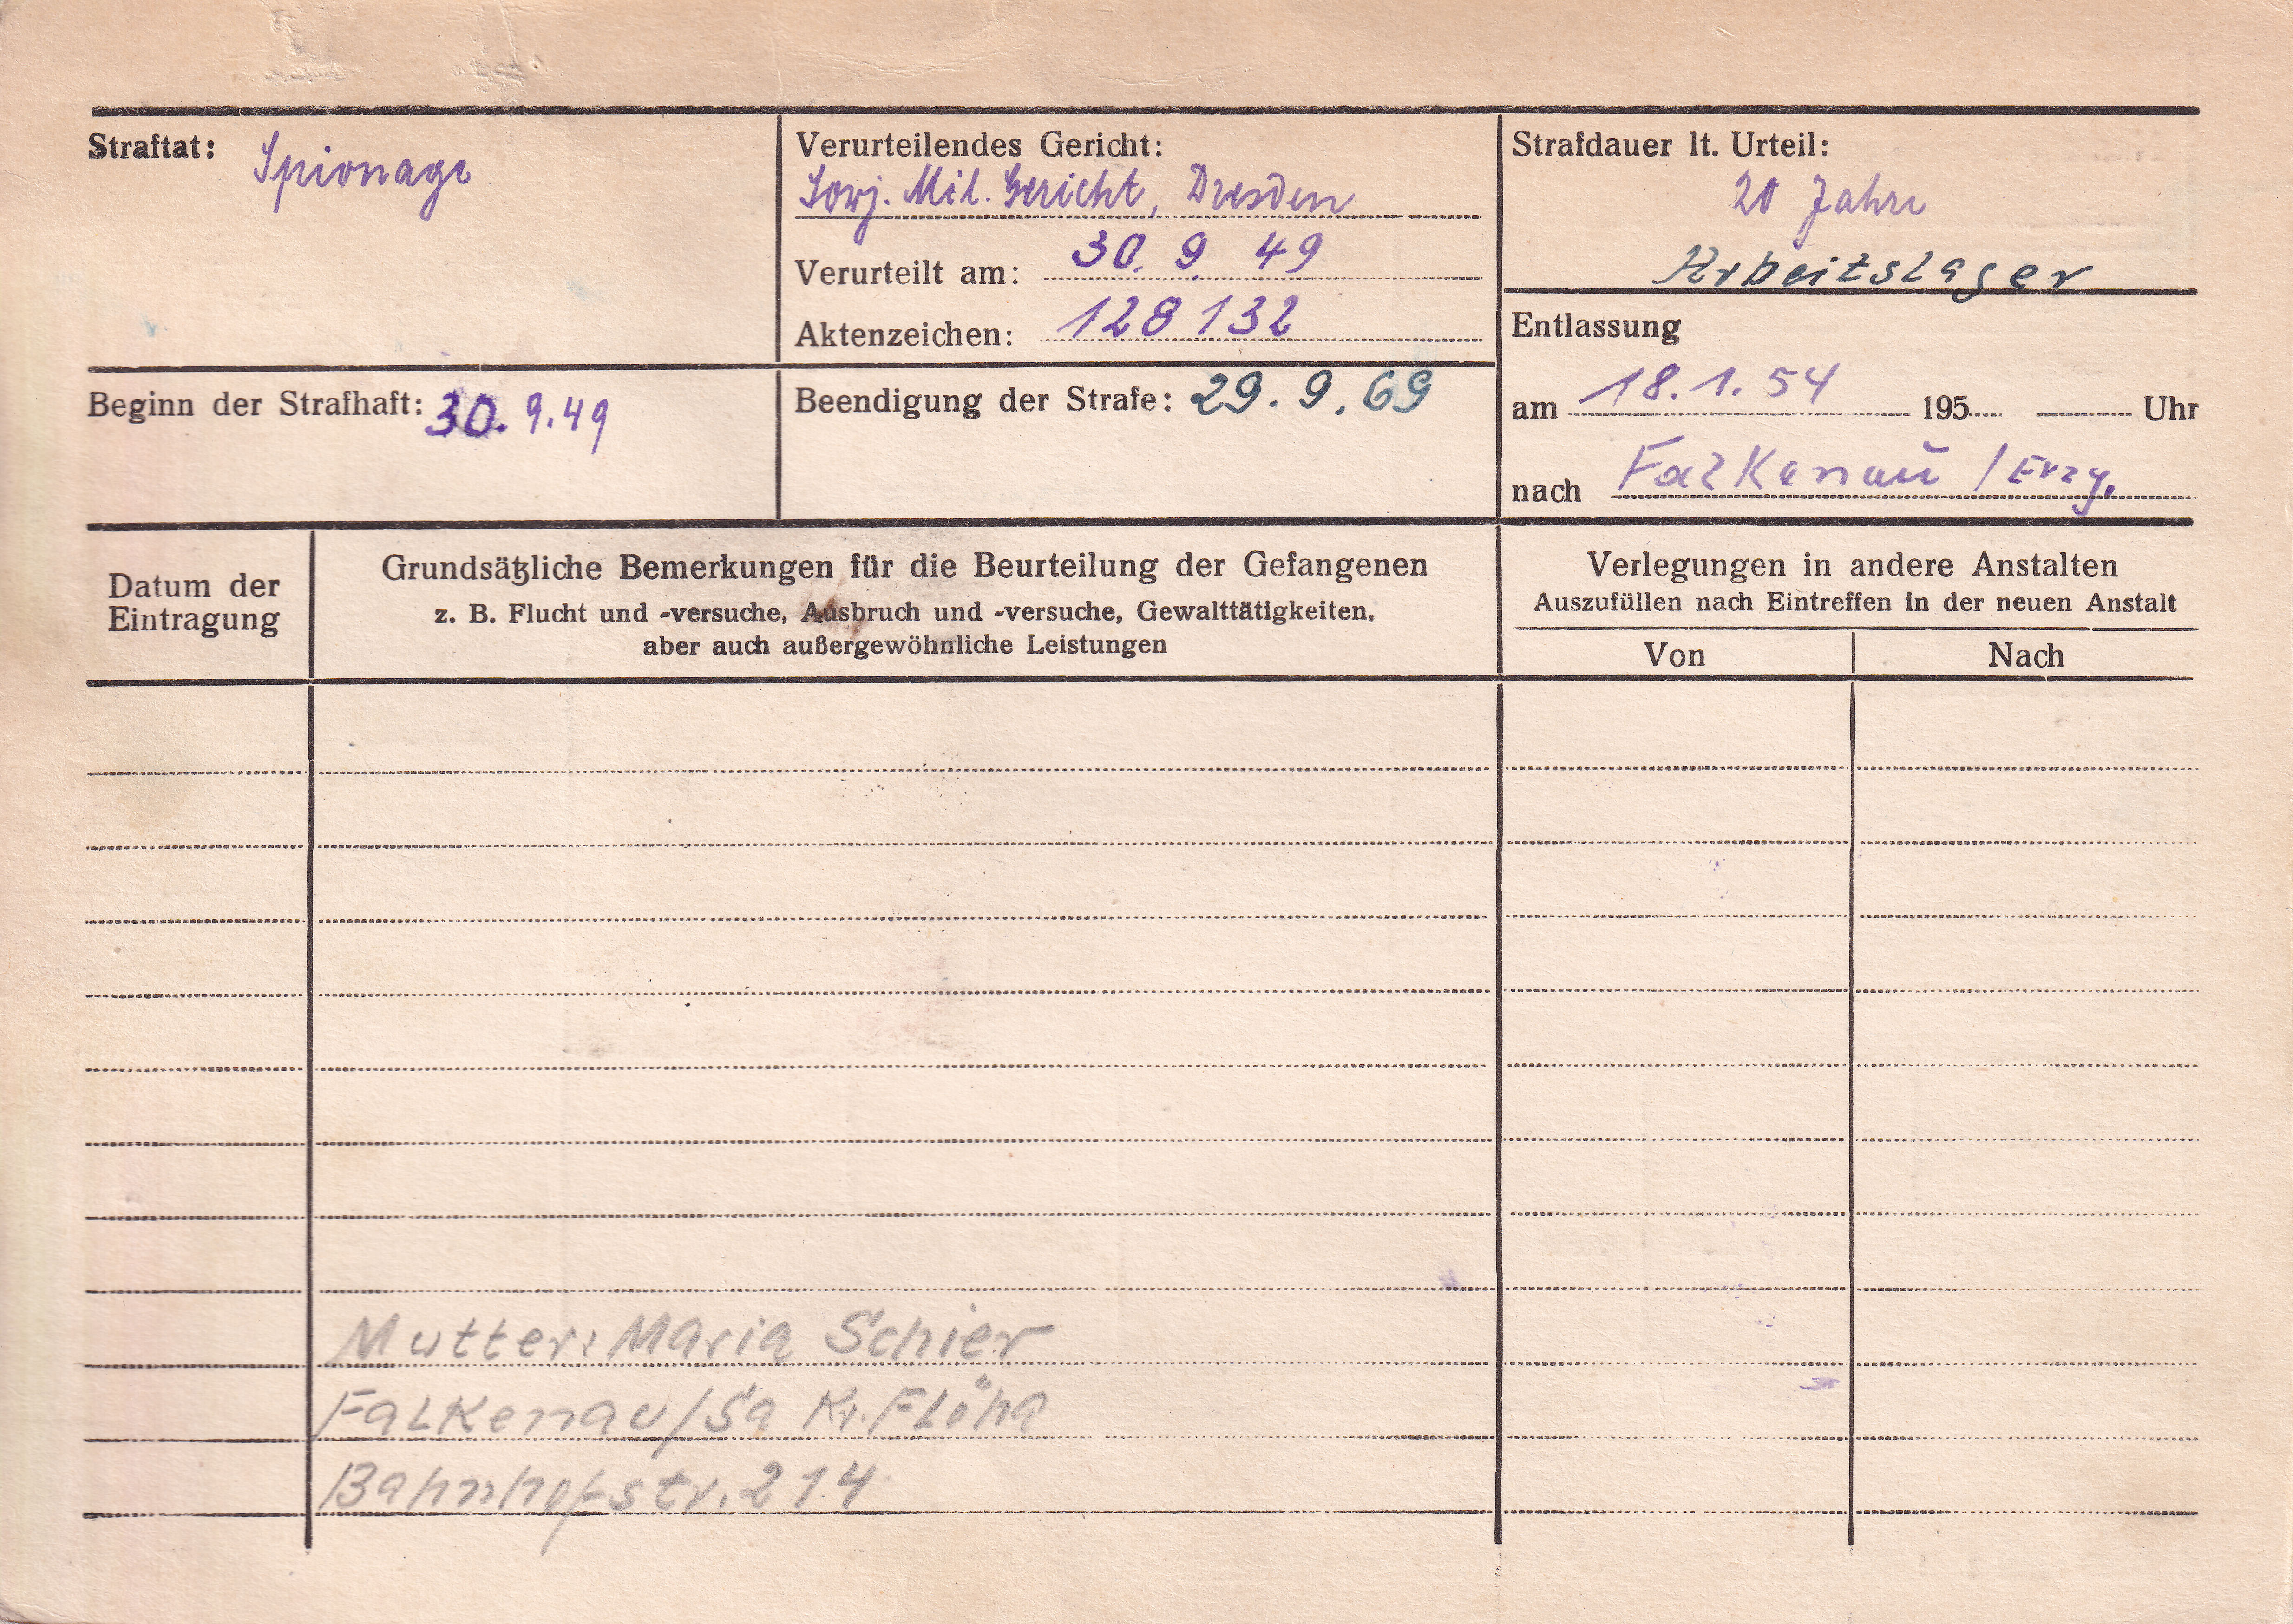 Straftat: Spionage
Verurteilendes Gericht:
Sowj. Mil. Gericht, Dresden
Verurteilt am: 30. 9. 49
Aktenzeichen: 128132
Strafdauer lt. Urteil:
20 Jahre
Arbeitslager
Beginn der Strafhaft: 30. 9. 49
Beendigung der Strafe: 29. 9. 69
Entlassung
am 18. 1. 54 195 Uhr
nach Falkenau / Erzg.
Datum der
Eintragung
Grundsätzliche Bemerkungen für die Beurteilung der Gefangenen
z. B. Flucht und -versuche, Ausbruch und -versuche, Gewalttätigkeiten,
aber auch außergewöhnliche Leistungen
Verlegungen in andere Anstalten
Auszufüllen nach Eintreffen in der neuen Anstalt
Von Nach
Mutter: Maria Schier
Falkenau/Sa Kr. Flöha
Bahnhofstr. 214